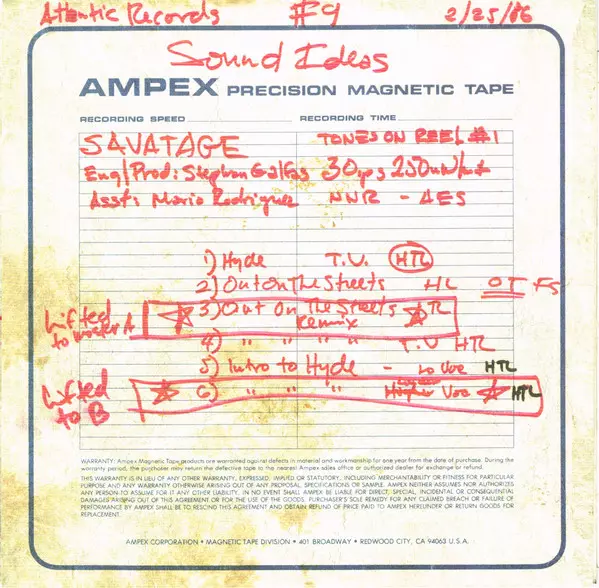 Atlantic Records #9 2/25/86
Sound Ideas
AMPEX PRECISION MAGNETIC TAPE
RECORDING SPEED RECORDING TIME
SAVATAGE TONES ON REEL #1
Eng/Prod: Stephan Galfas 30ips 250nW/m
Asst: Mario Rodriguez NNR - AES
1) Hyde T.V. HTL
2) Out On The Streets HL OT ES
Lifted to Master A ☆ 3) Out On The Streets ☆ TL
Remix
4) " " " T.V HTL
5) Intro to Hyde - Lo Voc HTL
Lifted to B ☆ 6) " " " Higher Voc ☆ HTL
WARRANTY: Ampex Magnetic Tape products are warranted against defects in material and workmanship for one year from the date of purchase. During the
warranty period, the purchaser may return the defective tape to the nearest Ampex sales office or authorized dealer for exchange or refund.
THIS WARRANTY IS IN LIEU OF ANY OTHER WARRANTY, EXPRESSED, IMPLIED OR STATUTORY, INCLUDING MERCHANTABILITY OR FITNESS FOR PARTICULAR
PURPOSE AND ANY WARRANTY OTHERWISE ARISING OUT OF ANY PROPOSAL, SPECIFICATIONS OR SAMPLE. AMPEX NEITHER ASSUMES NOR AUTHORIZES
ANY PERSON TO ASSUME FOR IT ANY OTHER LIABILITY. IN NO EVENT SHALL AMPEX BE LIABLE FOR DIRECT, SPECIAL, INCIDENTAL OR CONSEQUENTIAL
DAMAGES ARISING OUT OF THIS AGREEMENT OR FOR THE USE OF THE GOODS. PURCHASER'S SOLE REMEDY FOR ANY CLAIMED BREACH OR FAILURE OF
PERFORMANCE BY AMPEX SHALL BE TO RESCIND THIS AGREEMENT AND OBTAIN REFUND OF PRICE PAID TO AMPEX HEREUNDER OR RETURN GOODS FOR
REPLACEMENT.
AMPEX CORPORATION • MAGNETIC TAPE DIVISION • 401 BROADWAY • REDWOOD CITY, CA 94063 U.S.A.